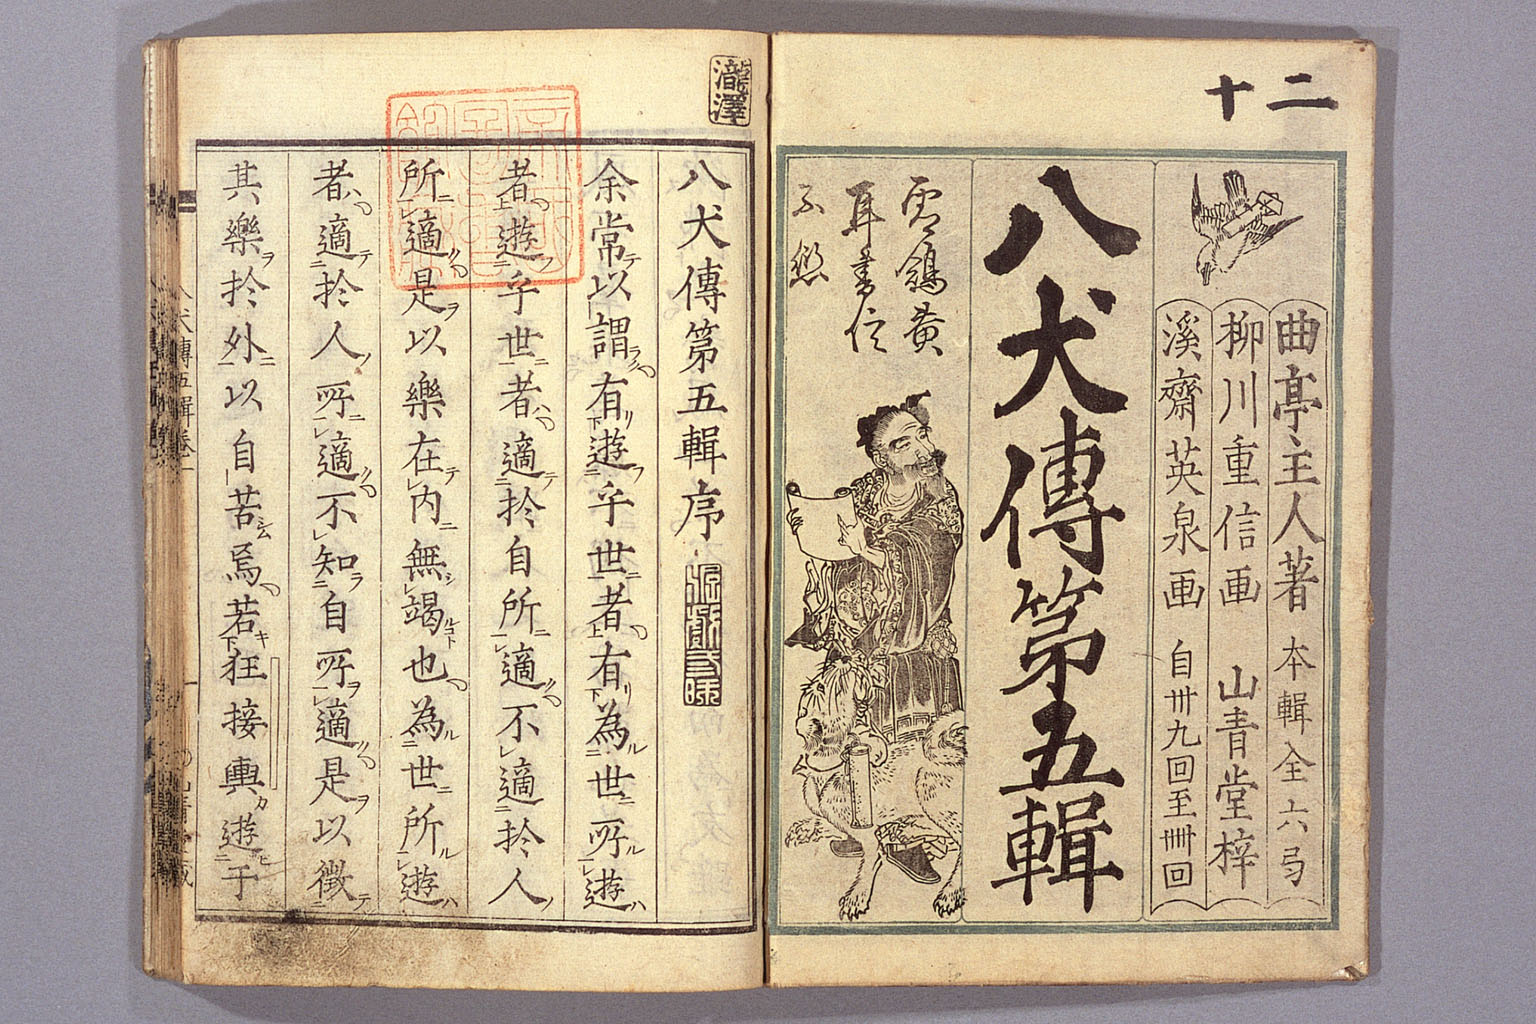 二十
曲亭主人著 本輯全六弓
柳川重信画 山青堂梓
溪齋英泉画 自卅九回至卌回
八犬傳第五輯
黄
耳書信
不愆
瀧澤
八犬傳第五輯序
余常以謂有遊乎世者有為世所遊
者遊乎世者適於自所適不適於人
所適是以樂在内無竭也為世所遊
者適於人所適不知自所適是以徴
其樂於外以自苦焉若狂接輿遊于
八犬傳五輯卷一